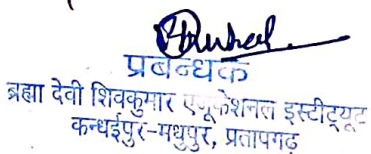 प्रबन्धक
ब्रह्मा देवी शिवकुमार एजूकेशनल इस्टीट्यूट
कन्धईपुर-मधुपुर, प्रतापगढ़